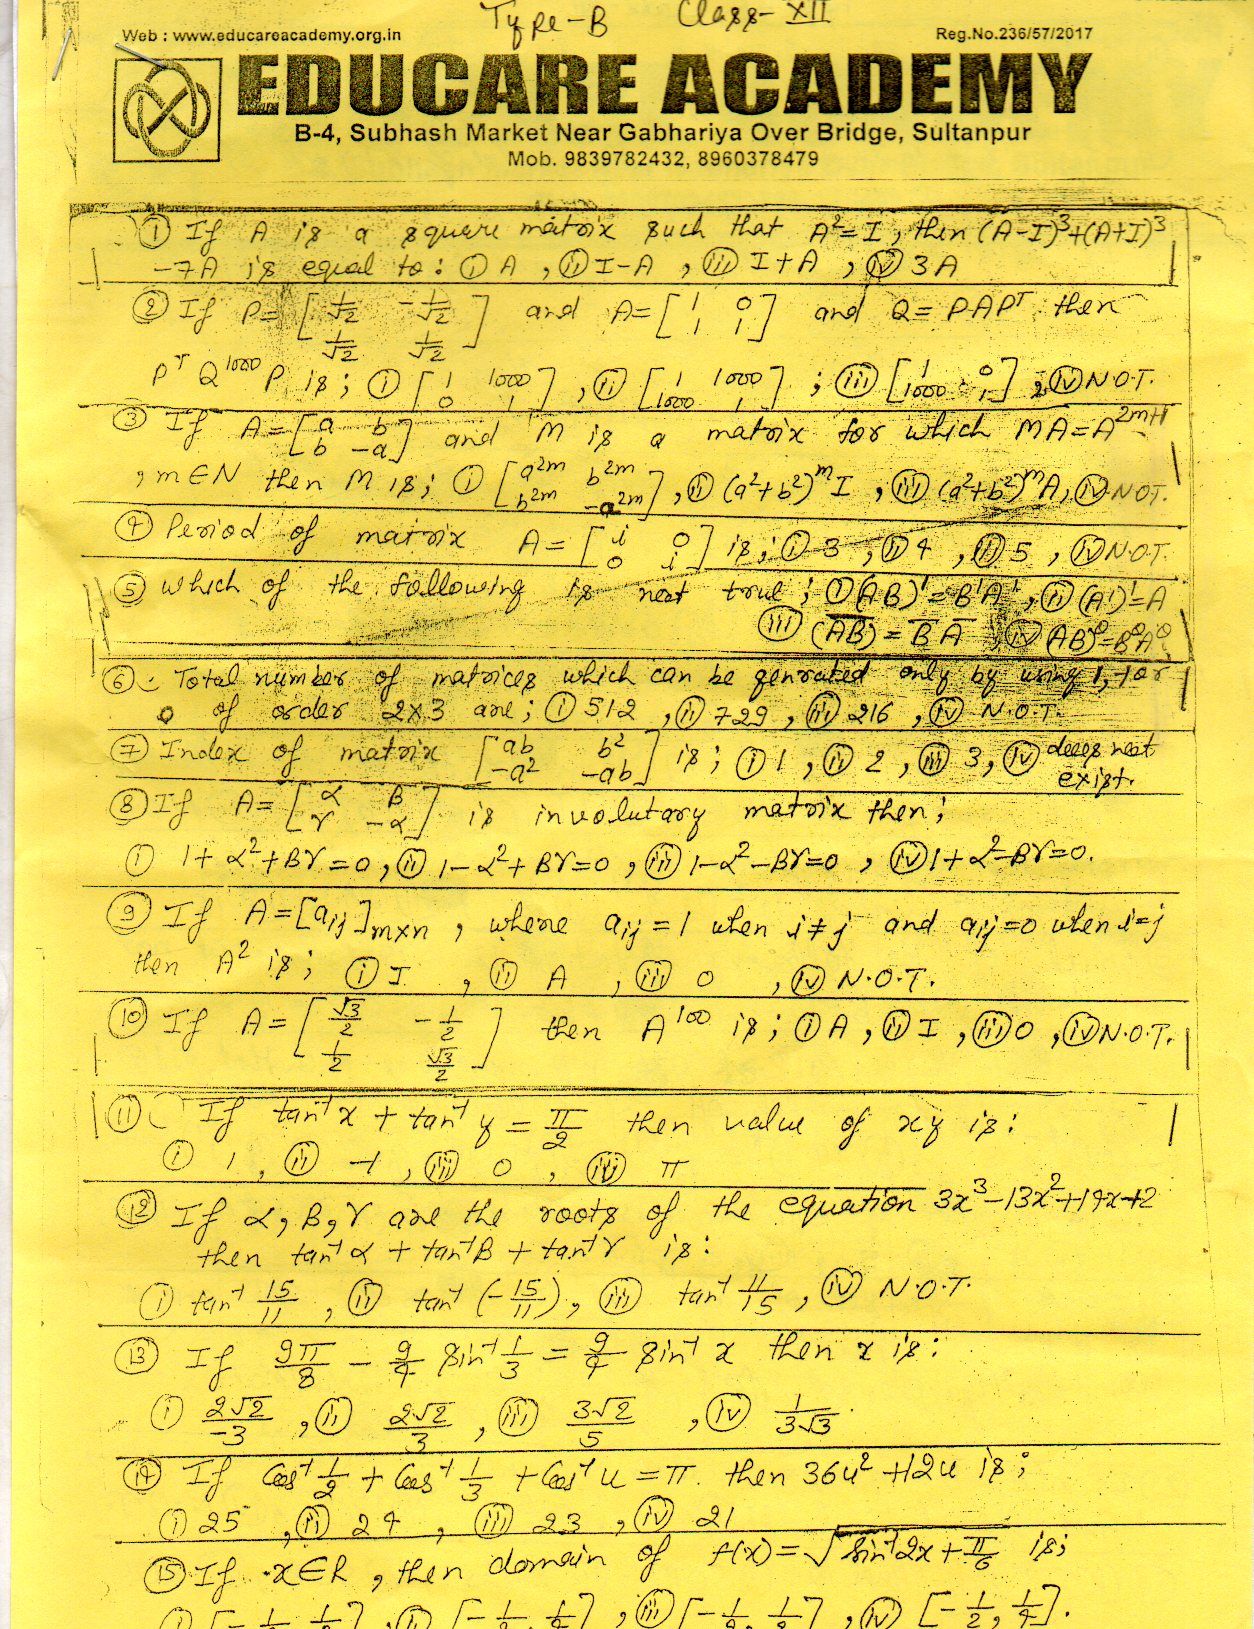 Type-B Class-XII
Web : www.educareacademy.org.in Reg.No.236/57/2017
EDUCARE ACADEMY
B-4, Subhash Market Near Gabhariya Over Bridge, Sultanpur
Mob. 9839782432, 8960378479
① If A is a square matrix such that A²=I, then (A-I)³+(A+I)³
-7A is equal to: ⓘ A , ⓘⓘ I-A , ⓘⓘⓘ I+A , ⓘⓥ 3A
② If P= [1/√2 -1/√2; 1/√2 1/√2] and A= [1 0; 1 1] and Q= PAPᵀ then
Pᵀ Q¹⁰⁰⁰ P is; (i) [1 1000; 0 1], (ii) [1 1000; 1000 1]; (iii) [1 0; 1000 1], (iv) N.O.T.
③ If A= [a b; b -a] and M is a matrix for which MA=A²ᵐ⁺¹
, m∈N then M is; (i) [a²ᵐ b²ᵐ; b²ᵐ -a²ᵐ], (ii) (a²+b²)ᵐI , (iii) (a²+b²)ᵐA, (iv) NOT.
④ Period of matrix A= [i 0; 0 i] is; (i) 3 , (ii) 4 , (iii) 5 , (iv) N.O.T.
⑤ which of the following is neat true; (i) (AB)'=B'A' , (ii) (A')'=A
(iii) (A̅B̅) = B̅ A̅ , (iv) (AB)^θ=B^θA^θ
⑥ Total number of matrices which can be genrated only by using 1,-1 or
0 of order 2×3 are; (i) 512 , (ii) 729 , (iii) 216 , (iv) N.O.T.
⑦ Index of matrix [ab b²; -a² -ab] is; (i) 1 , (ii) 2 , (iii) 3, (iv) does not
exist.
⑧ If A= [α β; γ -α] is involutary matrix then;
(i) 1+α²+βγ=0 , (ii) 1-α²+βγ=0 , (iii) 1-α²-βγ=0 , (iv) 1+α²-βγ=0.
⑨ If A=[aij]m×n , where aij=1 when i≠j and aij=0 when i=j
then A² is; (i) I , (ii) A , (iii) 0 , (iv) N.O.T.
⑩ If A= [√3/2 -1/2; 1/2 √3/2] then A¹⁰⁰ is; (i) A , (ii) I , (iii) 0 , (iv) N.O.T.
⑪ If tan⁻¹x + tan⁻¹y = π/2 then value of xy is:
(i) 1 , (ii) -1 , (iii) 0 , (iv) π
⑫ If α, β, γ are the roots of the equation 3x³-13x²+14x+2
then tan⁻¹α + tan⁻¹β + tan⁻¹γ is:
(i) tan⁻¹ 15/11 , (ii) tan⁻¹ (-15/11), (iii) tan⁻¹ 11/15 , (iv) N.O.T
⑬ If 9π/8 - 9/4 sin⁻¹ 1/3 = 9/4 sin⁻¹ x then x is:
(i) 2√2/-3 , (ii) 2√2/3 , (iii) 3√2/5 , (iv) 1/3√3
⑭ If Cos⁻¹ 1/2 + Cos⁻¹ 1/3 + Cos⁻¹ u = π. then 36u²+12u is;
(i) 25 , (ii) 24 , (iii) 23 , (iv) 21
⑮ If x∈R , then domain of f(x)= √(sin⁻¹2x+π/6) is;
(iv) [-1/2, 1/4].